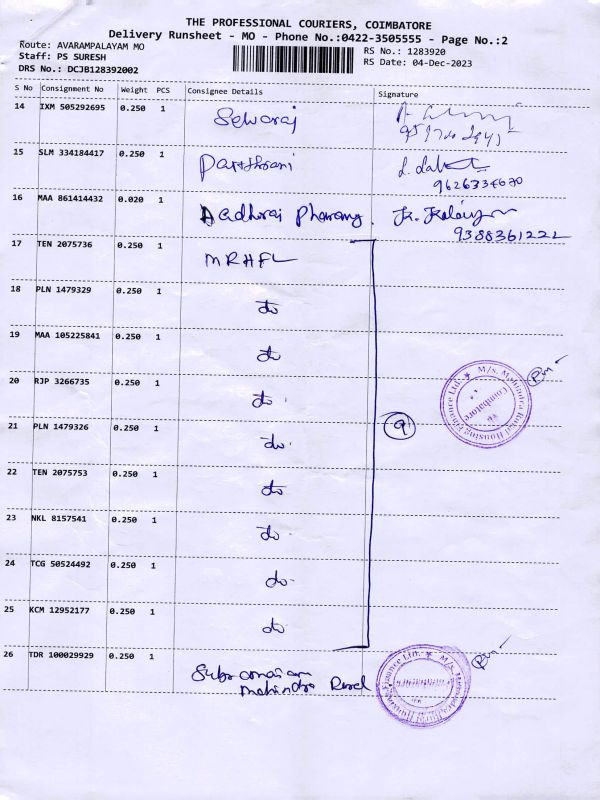 THE PROFESSIONAL COURIERS, COIMBATORE
Delivery Runsheet - MO - Phone No.:0422-3505555 - Page No.:2
Route: AVARAMPALAYAM MO
Staff: PS SURESH
DRS No.: DCJB128392002
RS No.: 1283920
RS Date: 04-Dec-2023
S No Consignment No Weight PCS Consignee Details Signature
14 IXM 505292695 0.250 1 Selvaraj
15 SLM 334184417 0.250 1 Parthasarathi
9626334670
16 MAA 861414432 0.020 1 Aadhirai Pharamy. K. Kalaiyar
9388361222
17 TEN 2075736 0.250 1 MRHFL
18 PLN 1479329 0.250 1 do
19 MAA 105225841 0.250 1 do
20 RJP 3266735 0.250 1 do.
21 PLN 1479326 0.250 1 do.
22 TEN 2075753 0.250 1 do
23 NKL 8157541 0.250 1 do.
24 TCG 50524492 0.250 1 do.
25 KCM 12952177 0.250 1 do
9
M/s. Mahindra Rural Housing Finance Ltd.
Coimbatore
26 TDR 100029929 0.250 1 Subramaniam
Mahindra Rural
M/s. Mahindra Rural Housing Finance Ltd.